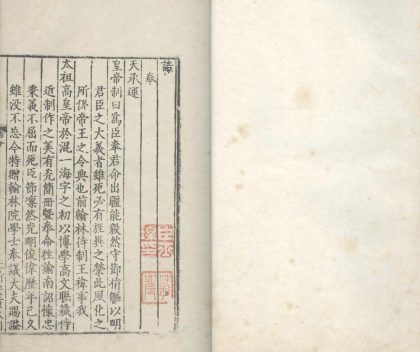 誥
奉
天承運
皇帝制曰爲臣奉君命出疆能毅然守節捐軀以明
君臣之大義者雖死必有旌異之榮此風化之
所係帝王之令典也前翰林待制王褘事我
太祖高皇帝於混一海宇之初以博學高文聯職待
近制作之美有光簡冊曁奉命往諭南詔懷忠
秉義不屈而死臣節凜然光明俊偉歷年已久
雖没不忘今特贈翰林院學士奉議大夫謚